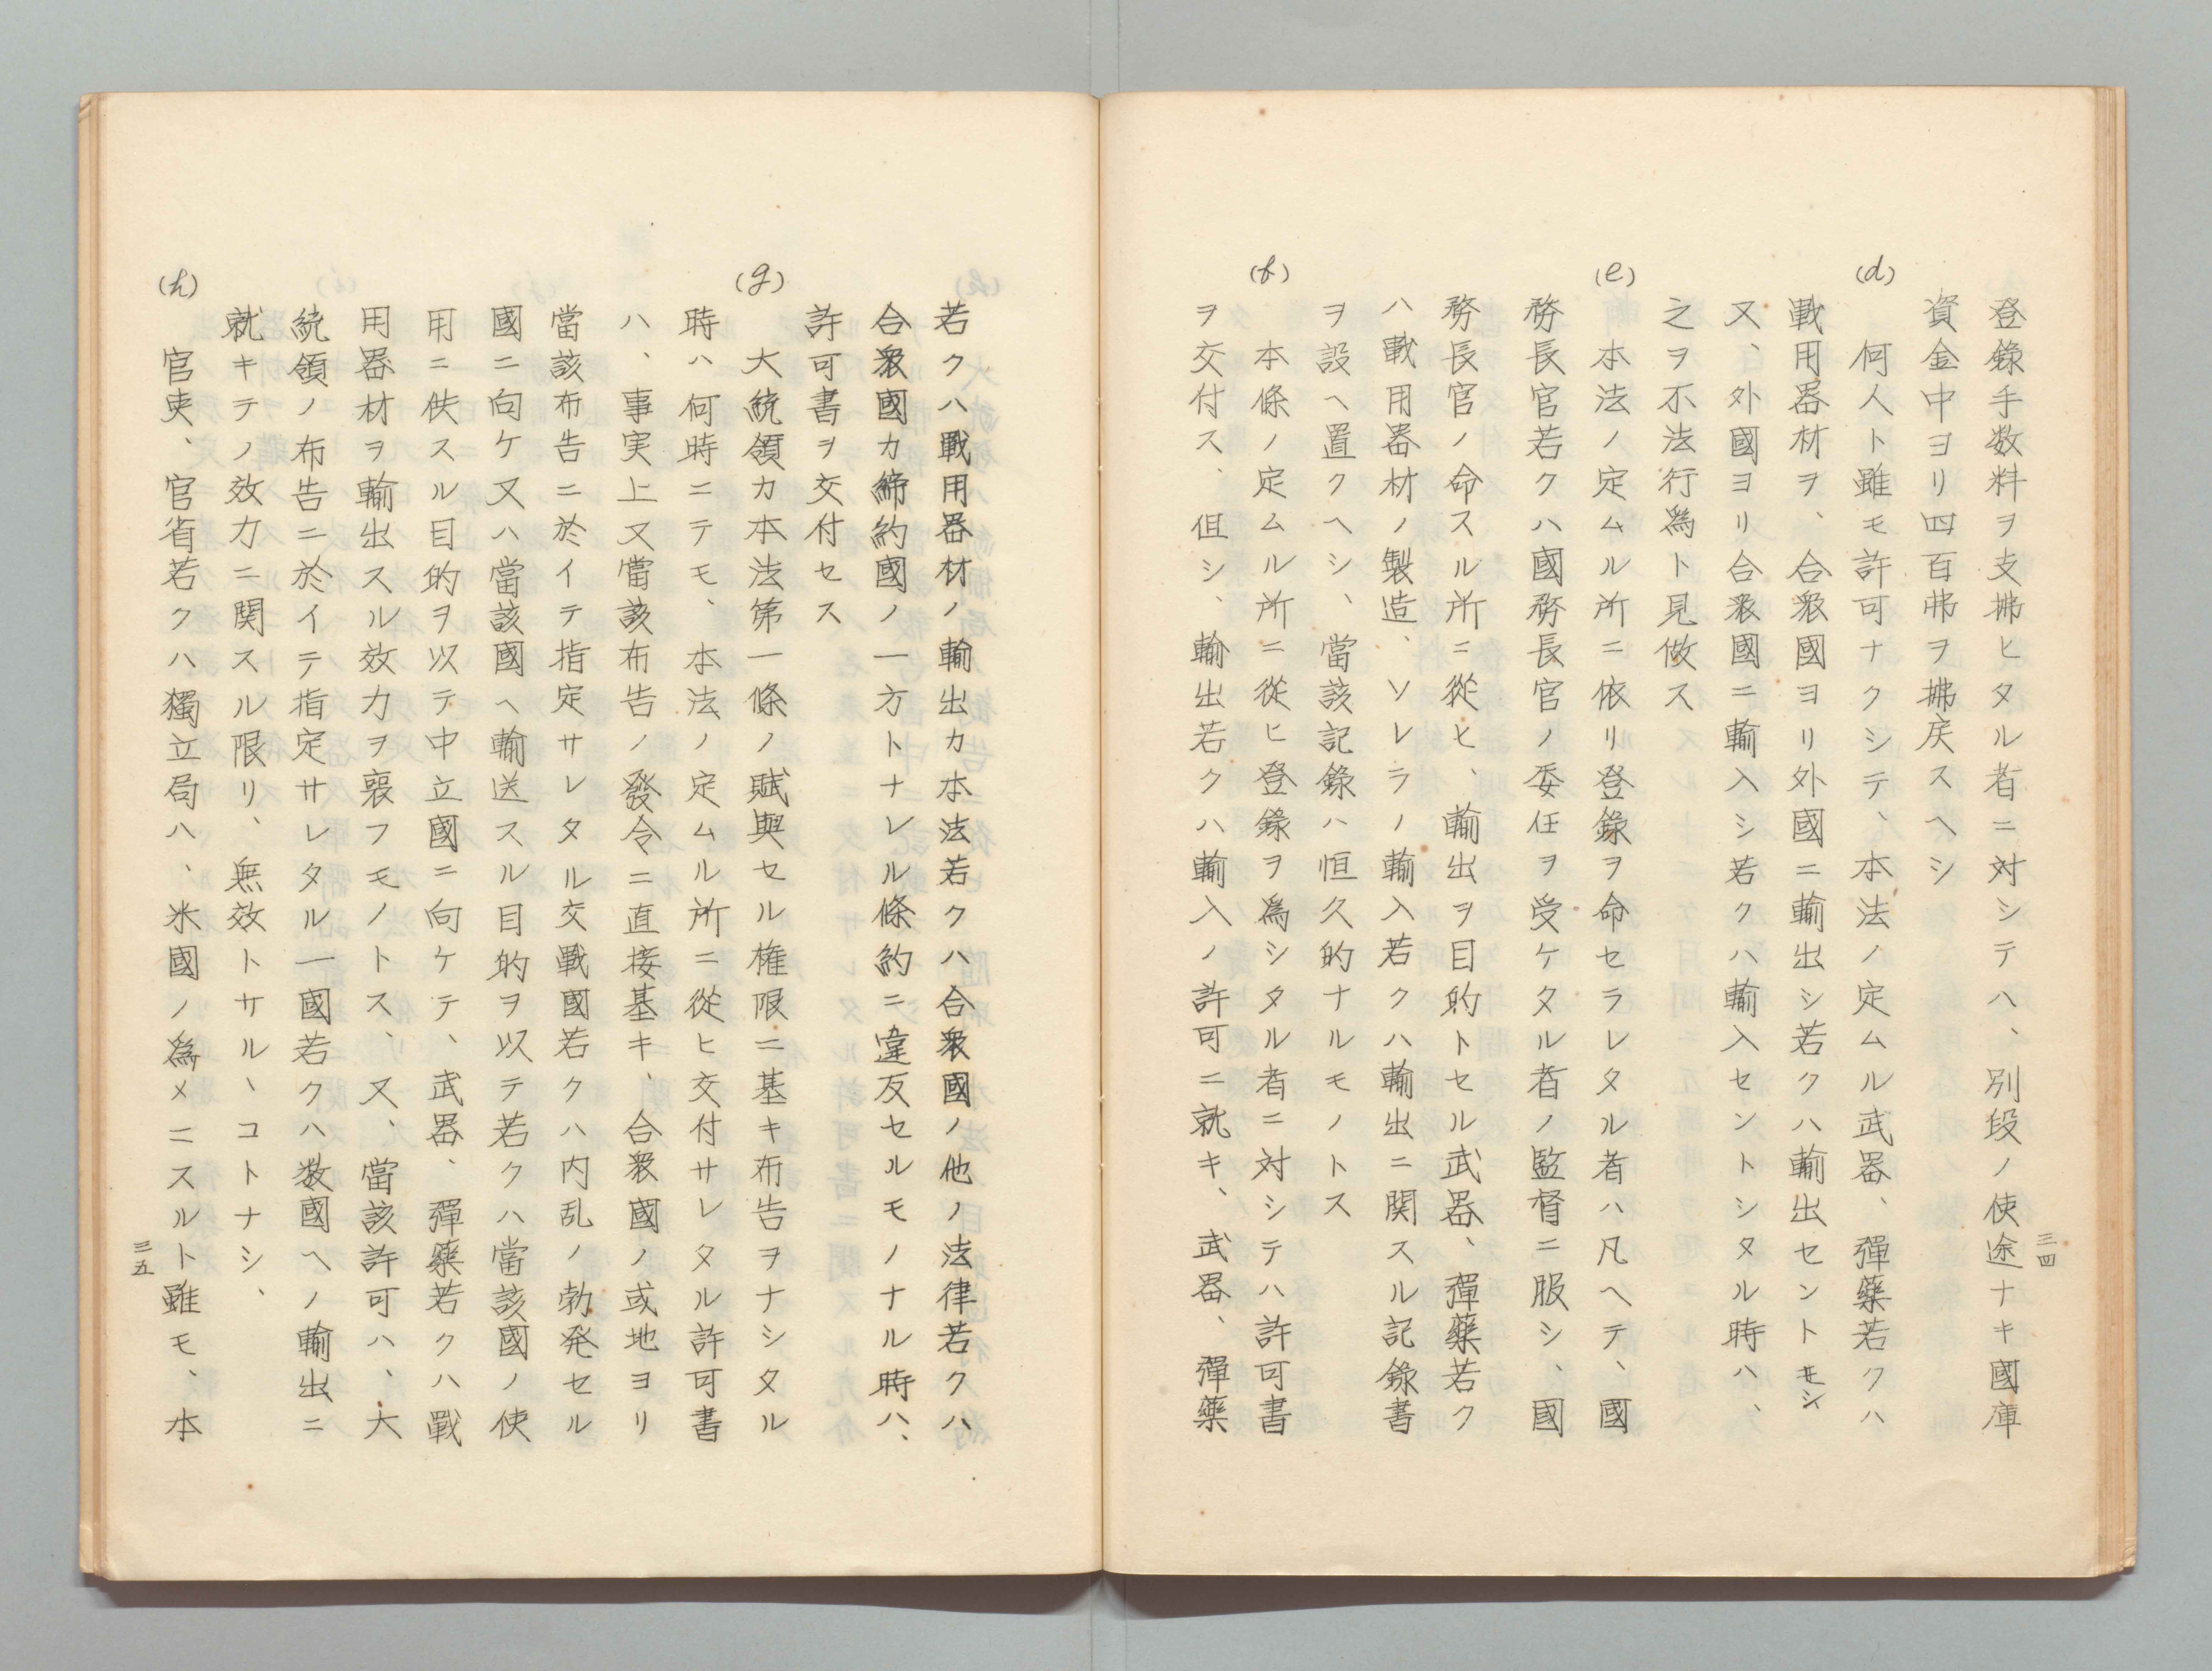 三四
登錄手数料ヲ支拂ヒタル者ニ対シテハ、別段ノ使途ナキ國庫
資金中ヨリ四百弗ヲ拂戻スヘシ
(d)
何人ト雖モ許可ナクシテ、本法ノ定ムル武器、彈藥若クハ
戰用器材ヲ、合衆國ヨリ外國ニ輸出シ若クハ輸出セントモシ
又、外國ヨリ合衆國ニ輸入シ若クハ輸入セントシタル時ハ、
之ヲ不法行為ト見做ス
(e)
本法ノ定ムル所ニ依リ登錄ヲ命セラレタル者ハ凡ヘテ、國
務長官若クハ國務長官ノ委任ヲ受ケタル者ノ監督ニ服シ、國
務長官ノ命スル所ニ從ヒ、輸出ヲ目的トセル武器、彈藥若ク
ハ戰用器材ノ製造、ソレラノ輸入若クハ輸出ニ関スル記錄書
ヲ設ヘ置クヘシ、當該記錄ハ恒久的ナルモノトス
(f)
本條ノ定ムル所ニ從ヒ登錄ヲ為シタル者ニ対シテハ許可書
ヲ交付ス、但シ、輸出若クハ輸入ノ許可ニ就キ、武器、彈藥
若クハ戰用器材ノ輸出カ本法若クハ合衆國ノ他ノ法律若クハ
合衆國カ締約國ノ一方トナレル條約ニ違反セルモノナル時ハ、
許可書ヲ交付セス
(g)
大統領カ本法第一條ノ賦與セル権限ニ基キ布告ヲナシタル
時ハ何時ニテモ、本法ノ定ムル所ニ從ヒ交付サレタル許可書
ハ、事実上又當該布告ノ發令ニ直接基キ、合衆國ノ或地ヨリ
當該布告ニ於イテ指定サレタル交戰國若クハ内乱ノ勃発セル
國ニ向ケ又ハ當該國ヘ輸送スル目的ヲ以テ若クハ當該國ノ使
用ニ供スル目的ヲ以テ中立國ニ向ケテ、武器、彈藥若クハ戰
用器材ヲ輸出スル效力ヲ喪フモノトス、又、當該許可ハ、大
統領ノ布告ニ於イテ指定サレタル一國若クハ数國ヘノ輸出ニ
就キテノ效力ニ関スル限リ、無效トサルヽコトナシ、
(h)
官吏、官省若クハ獨立局ハ、米國ノ為メニスルト雖モ、本
三五